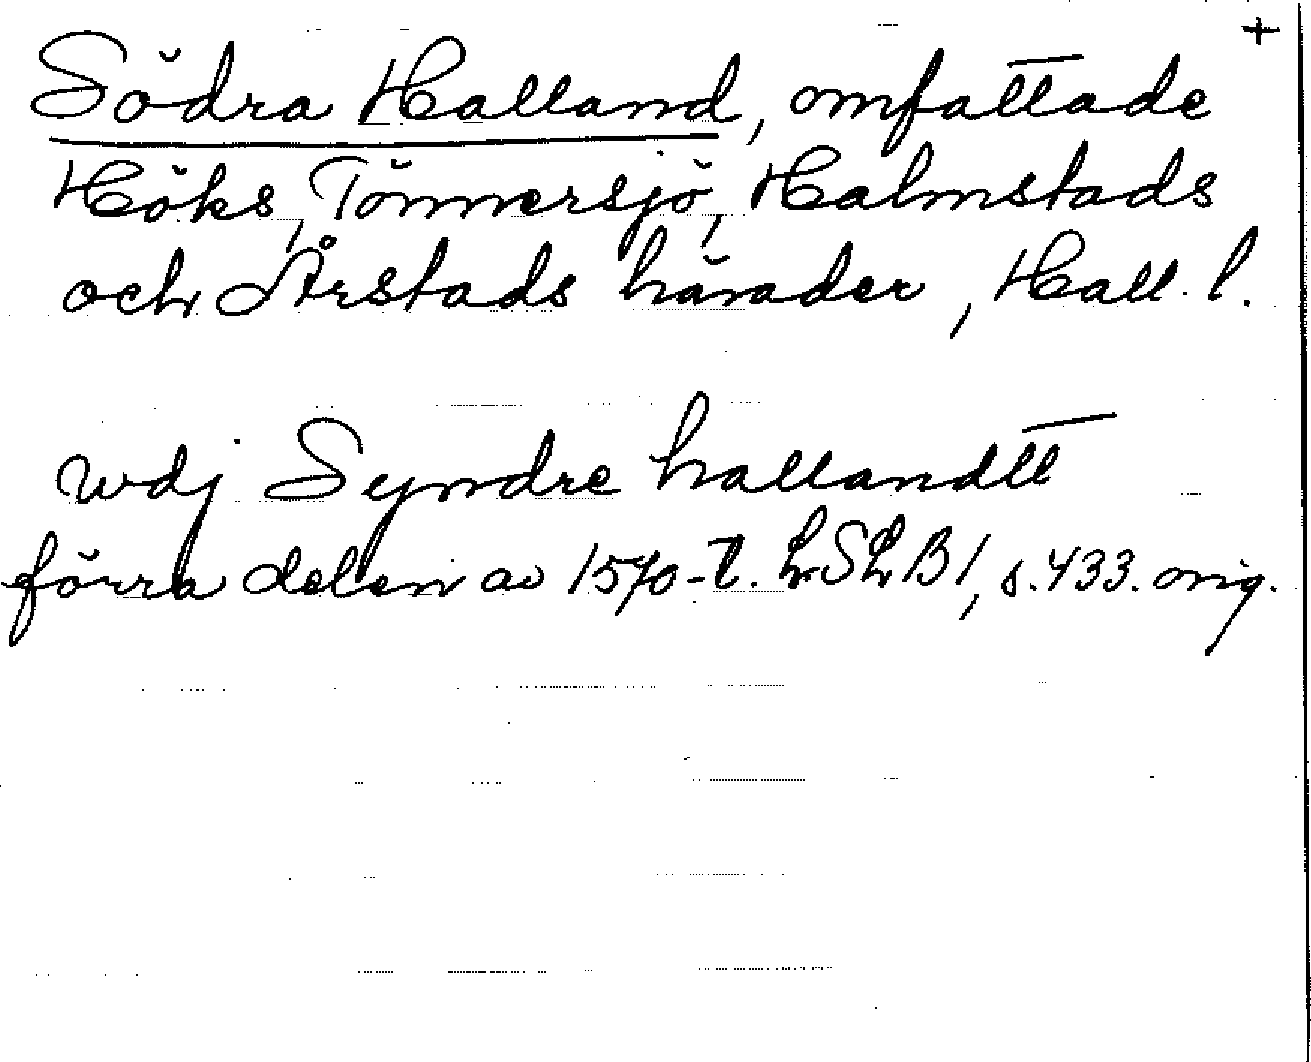 +
Södra Halland, omfattade
Höks, Tönnersjö, Halmstads
och Årstads härader, Hall. l.
wdj Syndre hallandtt
förra delen av 1570-t. LSLB1, s. 433. orig.